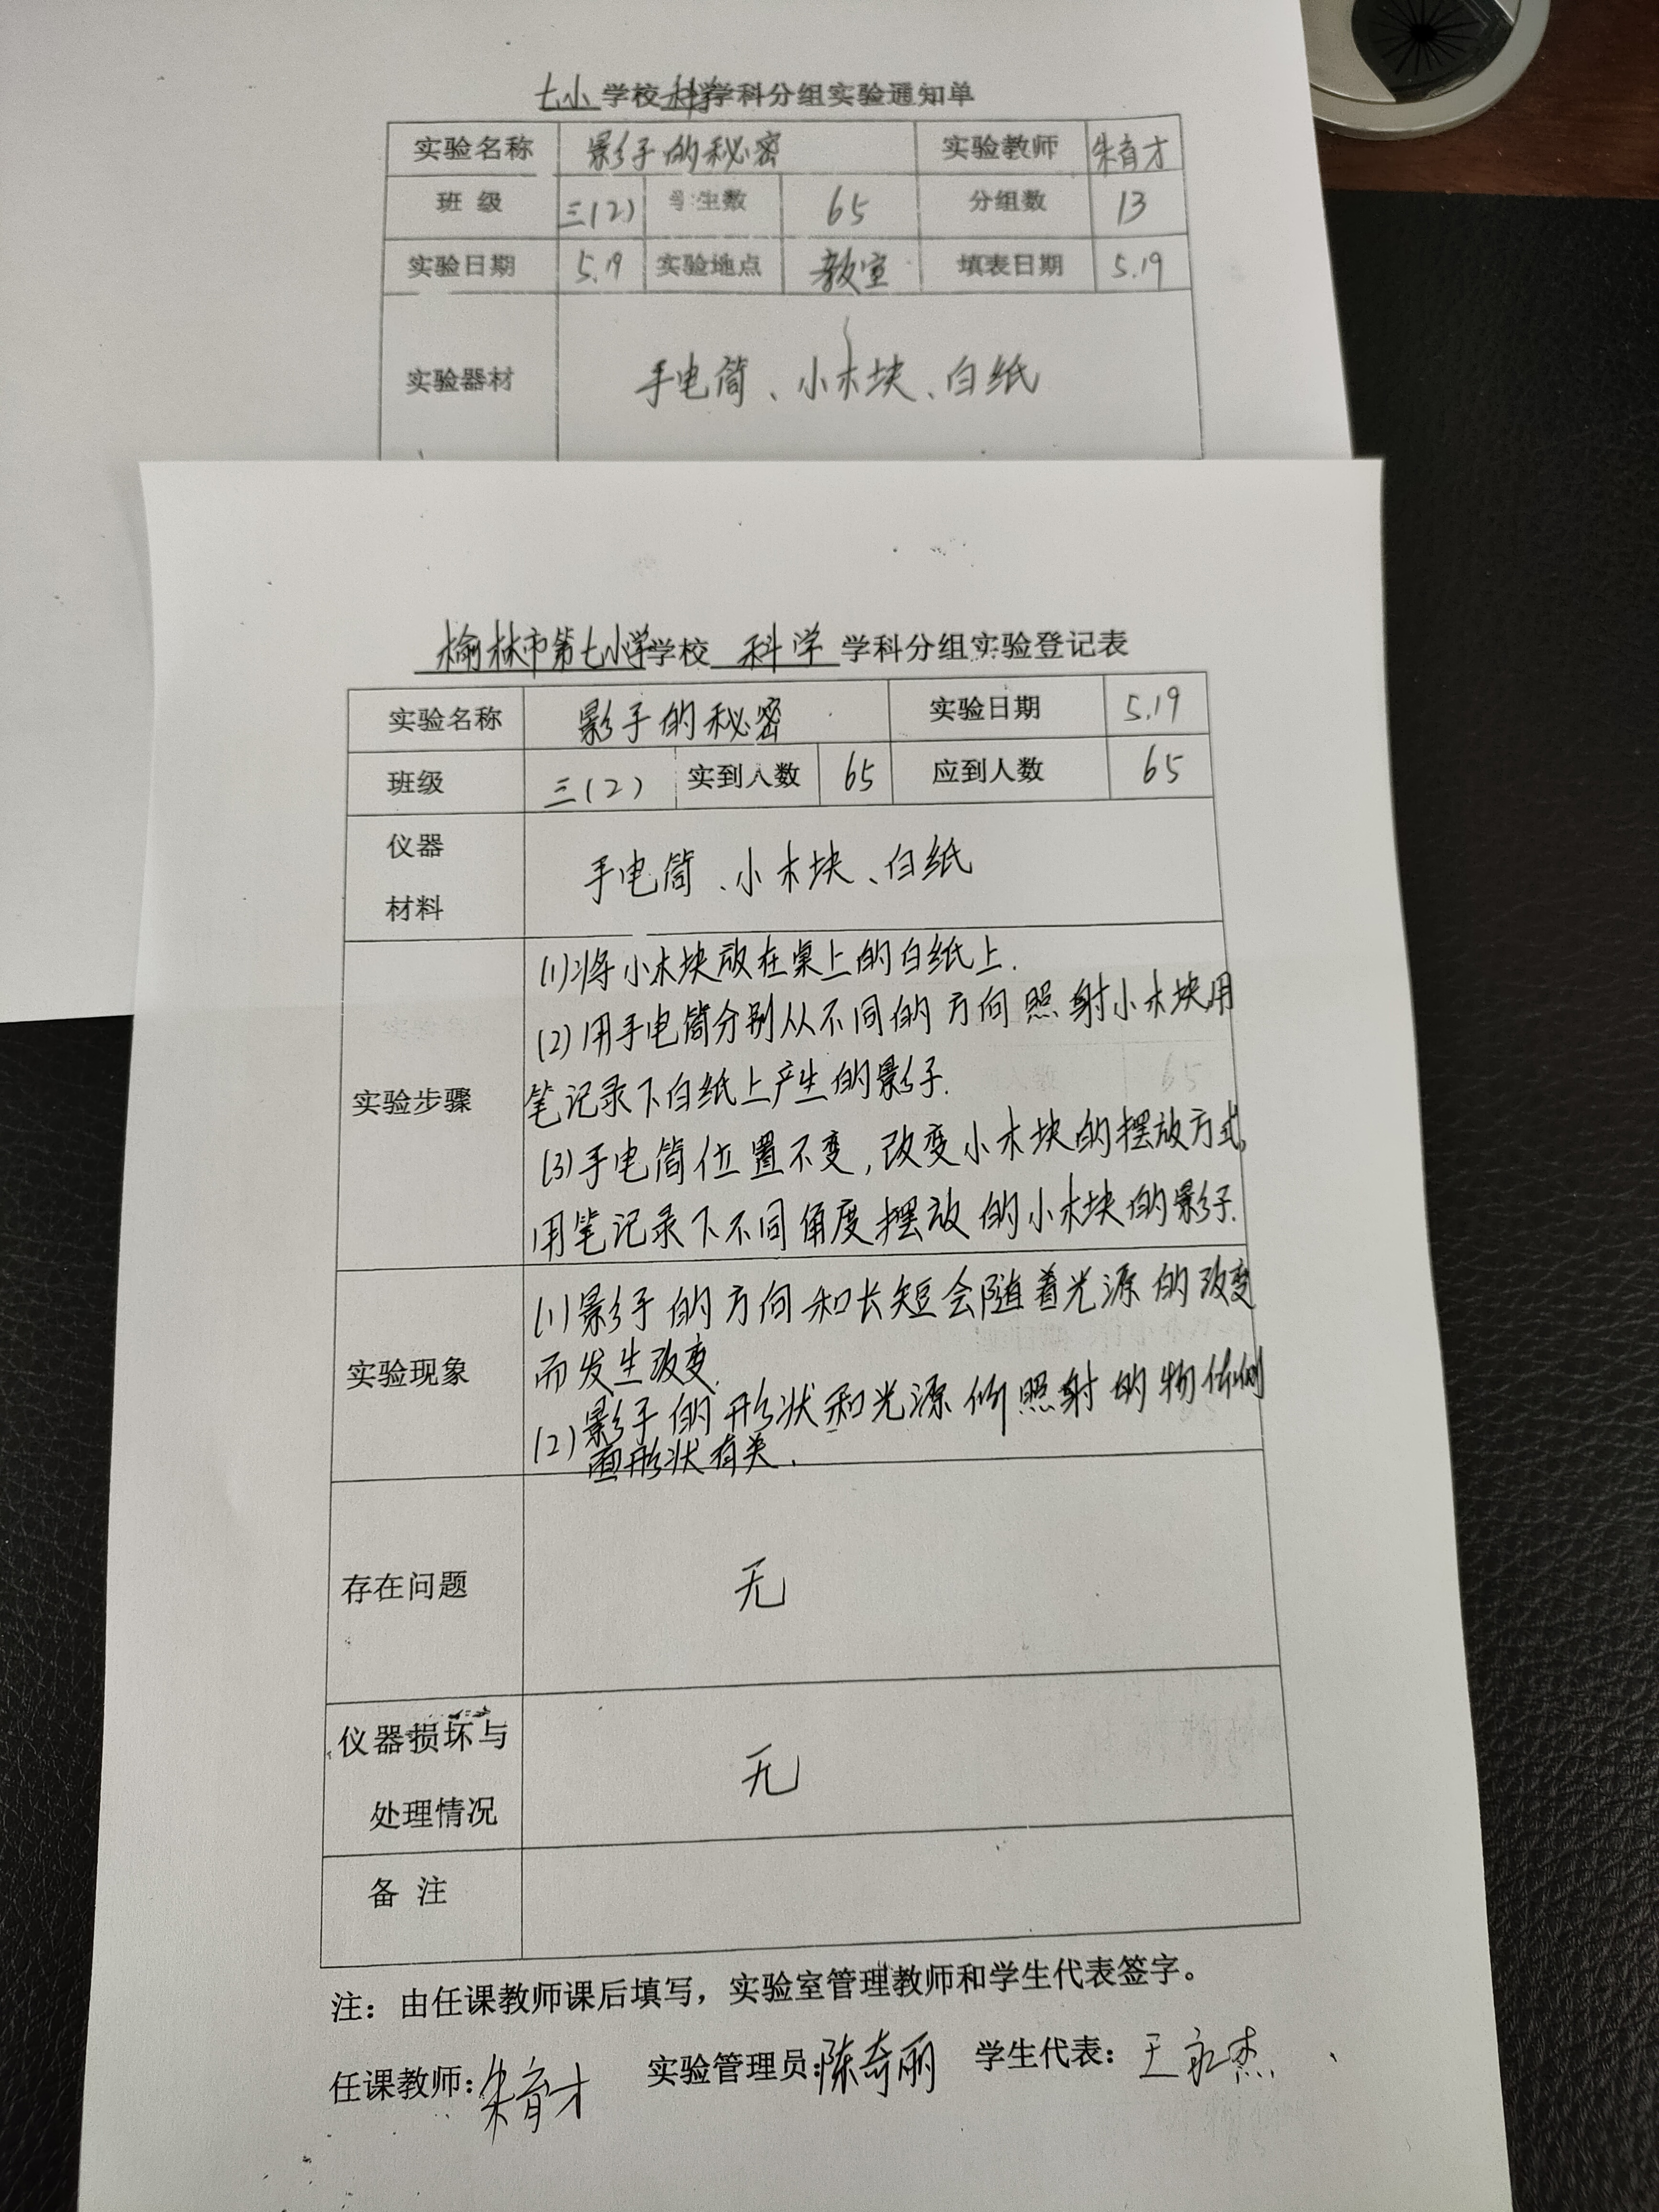 七小学校科学学科分组实验通知单
实验名称 影子的秘密 实验教师 朱育才
班 级 三(2) 学生数 65 分组数 13
实验日期 5.19 实验地点 教室 填表日期 5.19
实验器材 手电筒、小木块、白纸
榆林市第七小学学校 科学 学科分组实验登记表
实验名称 影子的秘密 实验日期 5.19
班级 三(2) 实到人数 65 应到人数 65
仪器
材料
手电筒、小木块、白纸
实验步骤
(1)将小木块放在桌上的白纸上.
(2)用手电筒分别从不同的方向照射小木块用
笔记录下白纸上产生的影子.
(3)手电筒位置不变,改变小木块的摆放方式,
用笔记录下不同角度摆放的小木块的影子.
实验现象
(1)影子的方向和长短会随着光源的改变
而发生改变.
(2)影子的形状和光源所照射的物体侧
面形状有关.
存在问题 无
仪器损坏与
处理情况
无
备 注
注：由任课教师课后填写，实验室管理教师和学生代表签字。
任课教师:朱育才 实验管理员:陈奇丽 学生代表：王永杰